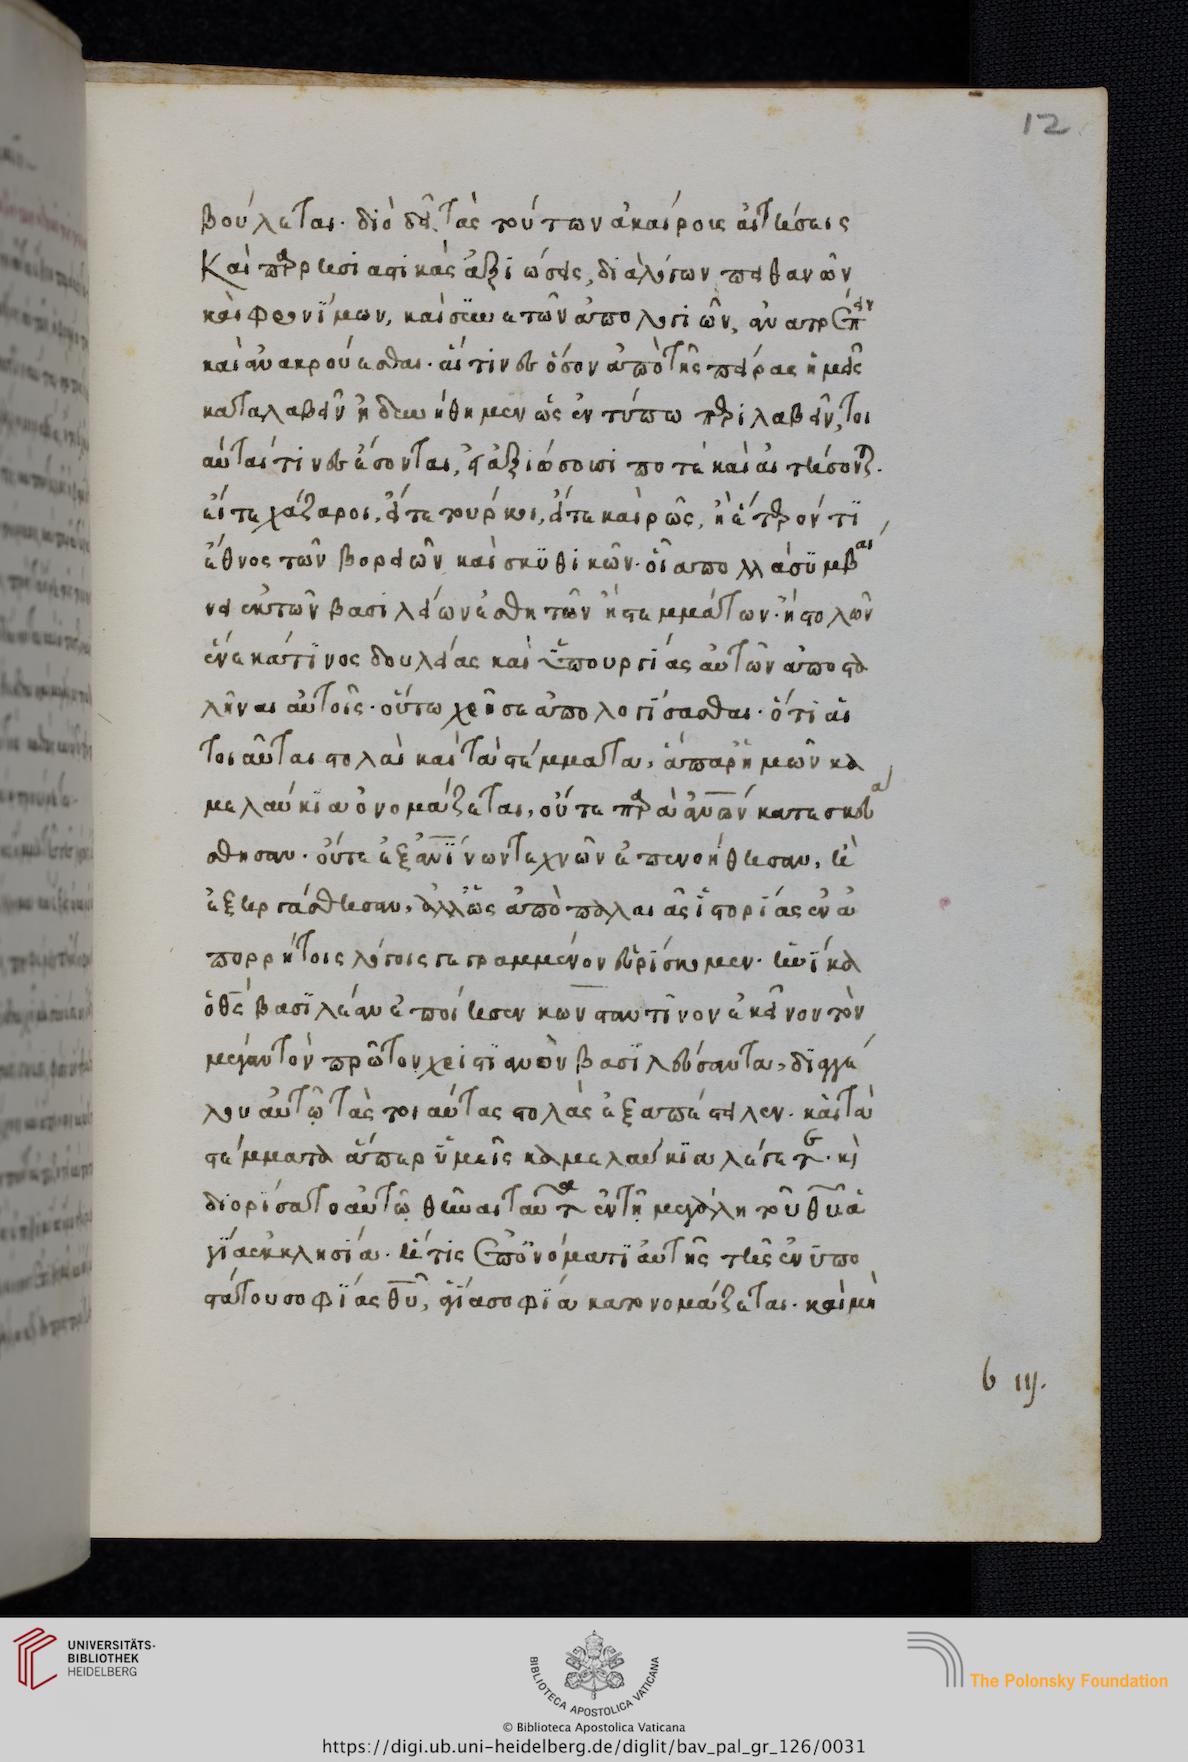 12
βούλεται. διὸ δεῖ τὰς τούτων ἀκαίρους αἰτήσεις
Καὶ παρρησιαστικὰς ἀξιώσεις, διαλόγων πιθανῶν
καὶ φρονίμων, καὶ συνετῶν ἀπολογιῶν, ἀνατρέπειν
καὶ ἀνακρούεσθαι. αἵτινες ὅσον ἀπὸ τῆς πείρας ἡμᾶς
καταλαβεῖν ἠδυνήθημεν ὡς ἐν τύπω περιλαβεῖν, τοι
αῦταί τινες ἔσονται, εἰ ἀξιώσουσί ποτε καὶ αἰτήσονται.
εἴτε χάζαροι, εἴτε τουρκοι, εἴτε καὶ ρῶς, ἢ ἕτερόν τι
ἔθνος τῶν βορείων καὶ σκυθικῶν. οἷα πολλὰ συμβαί
νει ἐκ τῶν βασιλείων ἐσθητῶν ἢ στεμμάτων. ἢ στολῶν
ἕνεκά τινος δουλείας καὶ ὑπουργίας αὐτῶν ἀποστα
λῆναι αὐτοῖς. οὕτω χρή σε ἀπολογήσασθαι. ὅτι αἱ
τοιαῦται στολαὶ καὶ τὰ στέμματα, ἃ παρ' ἡμῶν κα
μελαύκια ὀνομάζεται, οὔτε παρὰ ἀνων κατεσκευά
σθησαν. οὔτε ἐξ ἀνίνων τεχνῶν ἐπενοήθησαν, ἢ
ἐξειργάσθησαν, ἀλλ' ὡς ἀπὸ παλαιᾶς ἱστορίας ἐν ἀ
πορρήτοις λόγοις γεγραμμένον εὑρίσκομεν. ἡνίκα
ὁ θς βασιλέαν ἐποίησεν κωνσταντῖνον ἐκεῖνον τὸν
μέγαν τὸν πρῶτον χριστιανὸν βασιλεύσαντα, δι' ἀγγέ
λου αὐτῷ τὰς τοιαύτας στολὰς ἐξαπέστειλεν. καὶ τὰ
στέμματα ἅπερ ὑμεῖς καμελαύκια λέγετε. καὶ
διορίσατο αὐτῷ θεῖναι ταῦτα ἐν τῇ μεγάλη τοῦ θῦ ἁ
γία ἐκκλησία. ἥτις ἐπ' ὀνόματι αὐτῆς τῆς ἐνυπο
στάτου σοφίας θῦ, ἁγία σοφία κατονομάζεται. καὶ μὴ
b iij.
UNIVERSITÄTS-
BIBLIOTHEK
HEIDELBERG
BIBLIOTECA APOSTOLICA VATICANA
The Polonsky Foundation
© Biblioteca Apostolica Vaticana
https://digi.ub.uni-heidelberg.de/diglit/bav_pal_gr_126/0031